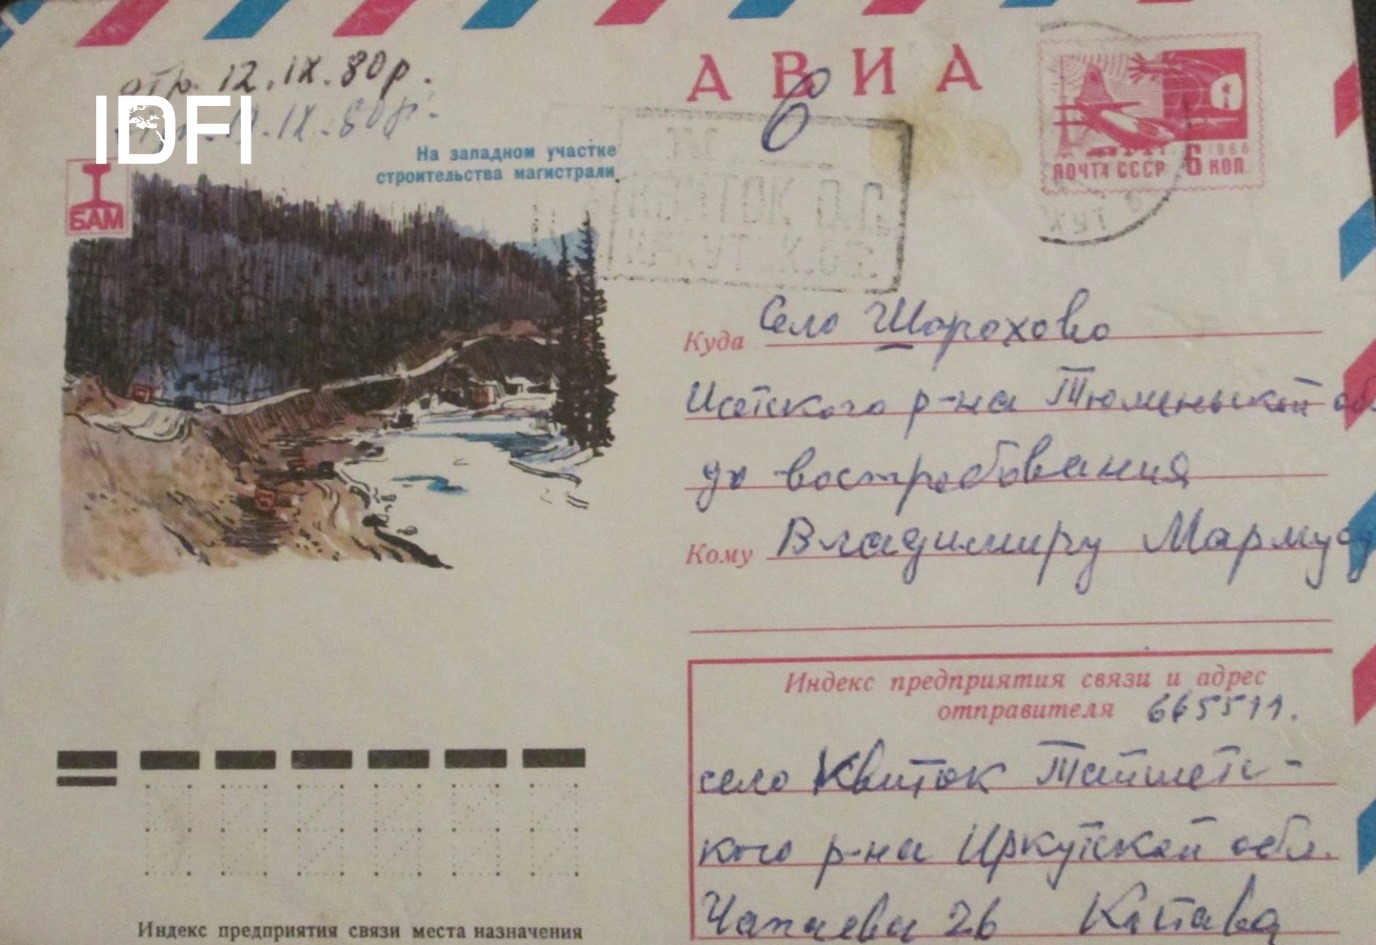 АВИА
отр. 12.IX.80г.
IDFI
6
На западном участке
строительства магистрали
БАМ
КВИТОК О.С.
ИРКУТСК.ОБЛ.
ПОЧТА СССР 6 КОП.
1966
Куда Село Шорохово
Исетского р-на Тюменьской об.
до востребования
Кому Владимиру
Индекс предприятия связи и адрес
отправителя 665511.
село Квиток Тайшетс-
кого р-на Иркутской обл.
Чапаева 26
Индекс предприятия связи места назначения